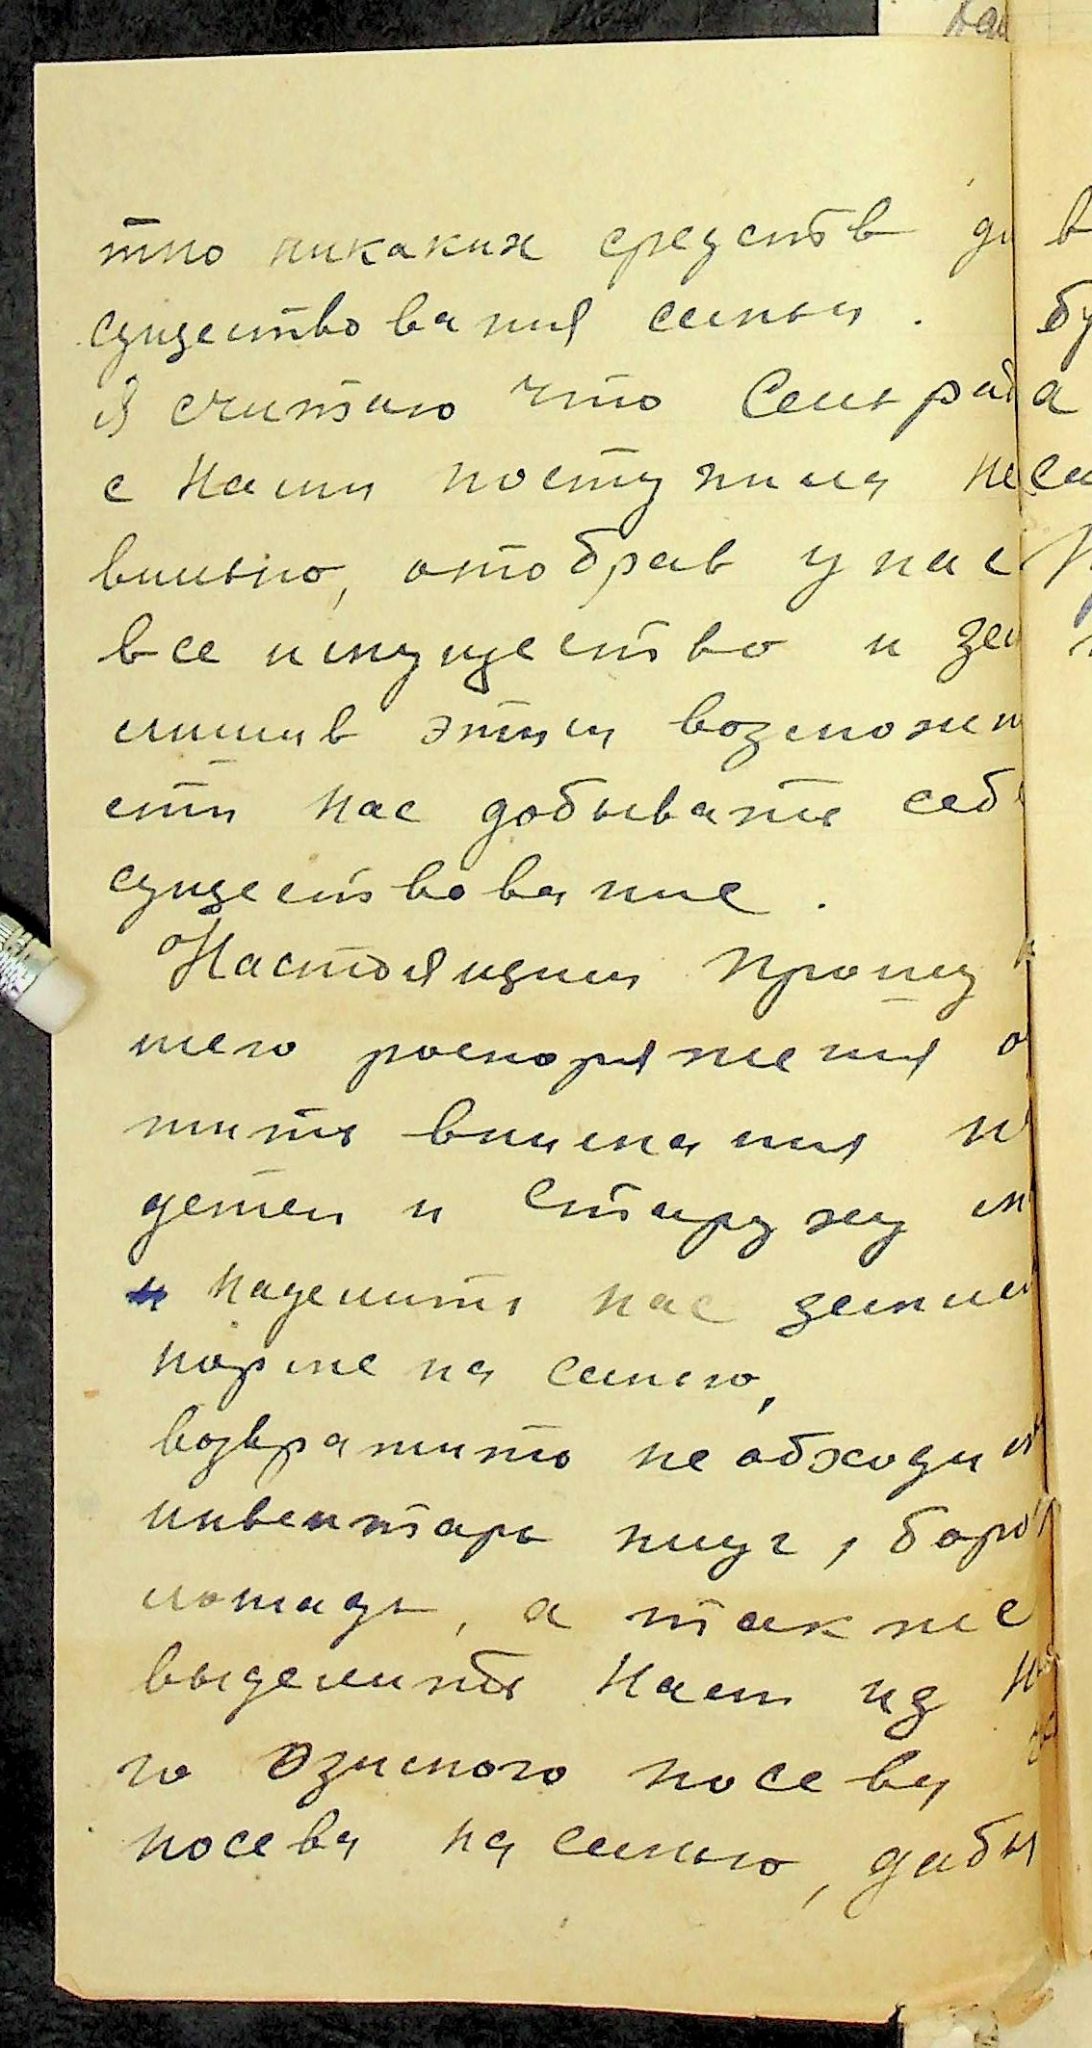 тно никаких средств дл
существования семьи.
Я считаю что Сельрада
с нами поступила не
вильно, отобрав у нас
все имущество и зем
лишив этим возможн
сти нас добывать себе
существование.
Настоящим прошу
шего роспоряжения о
тить внимания н
детей и старуху м
наделить нас землей
норме на семью,
возвратить необходим
инвентарь плуг, боро
лошадь, а также
выделить нам из
го озимого посева
посева на семью, дабы